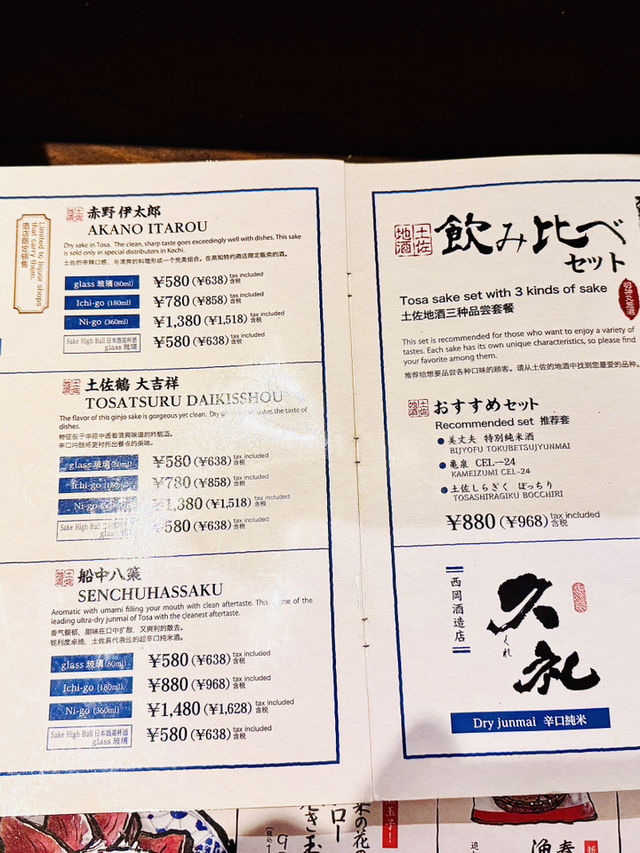 Limited to liquor shops
that carry them.
酒店限定销售
土佐
地酒
赤野 伊太郎
AKANO ITAROU
Dry sake in Tosa. The clean, sharp taste goes exceedingly well with dishes. This sake
is sold only in special distributors in Kochi.
土佐的辛辣口感，与清爽的料理形成一个完美组合。在高知特约商店限定贩卖的酒。
glass 玻璃(80ml) ¥580(¥638) tax included 含税
Ichi-go (180ml) ¥780(¥858) tax included 含税
Ni-go (360ml) ¥1,380(¥1,518) tax included 含税
Sake High Ball 日本酒高杯酒
glass 玻璃 ¥580(¥638) tax included 含税
土佐
地酒
土佐鶴 大吉祥
TOSATSURU DAIKISSHOU
The flavor of this ginjo sake is gorgeous yet clean. Dry the taste of
dishes.
特征在于华丽中透着清爽味道的吟酿酒。
辛口吟酿将更衬托出餐点的美味。
glass 玻璃(80ml) ¥580(¥638) tax included 含税
Ichi-go (180ml) ¥780(¥858) tax included 含税
Ni-go (360ml) ¥1,380(¥1,518) tax included 含税
Sake High Ball 日本酒高杯酒
glass 玻璃 ¥580(¥638) tax included 含税
土佐
地酒
船中八策
SENCHUHASSAKU
Aromatic with umami filling your mouth with clean aftertaste. This one of the
leading ultra-dry junmai of Tosa with the cleanest aftertaste.
香气馥郁，甜味在口中扩散，又爽利的散去。
锐利度卓绝，土佐具代表性的超辛口纯米酒。
glass 玻璃(80ml) ¥580(¥638) tax included 含税
Ichi-go (180ml) ¥880(¥968) tax included 含税
Ni-go (360ml) ¥1,480(¥1,628) tax included 含税
Sake High Ball 日本酒高杯酒
glass 玻璃 ¥580(¥638) tax included 含税
土佐
地酒
飲み比べ
セット
Tosa sake set with 3 kinds of sake
土佐地酒三种品尝套餐
This set is recommended for those who want to enjoy a variety of
tastes. Each sake has its own unique characteristics, so please find
your favorite among them.
推荐给想要品尝各种口味的顾客。请从土佐的地酒中找到您最爱的品种。
土佐
地酒
おすすめセット
Recommended set 推荐套
●美丈夫 特別純米酒
BIJYOFU TOKUBETSUJYUNMAI
●亀泉 CEL—24
KAMEIZUMI CEL-24
●土佐しらぎく ぼっちり
TOSASHIRAGIKU BOCCHIRI
¥880(¥968) tax included 含税
西岡酒造店
久礼
くれ
Dry junmai 辛口純米